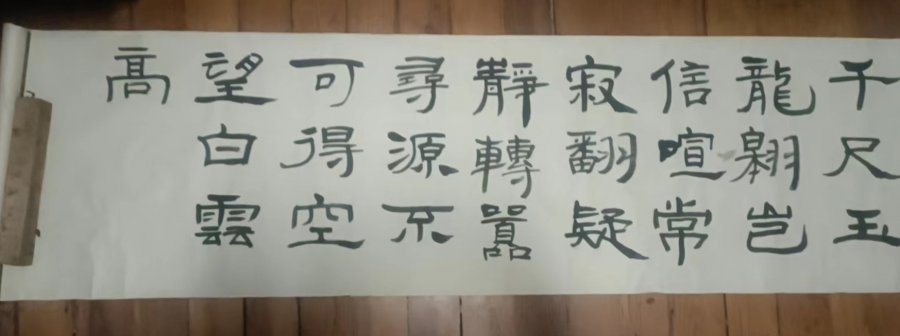 千尺玉
龍翱岂
信喧常
寂翻疑
靜轉囂
尋源不
可得空
望白雲
高